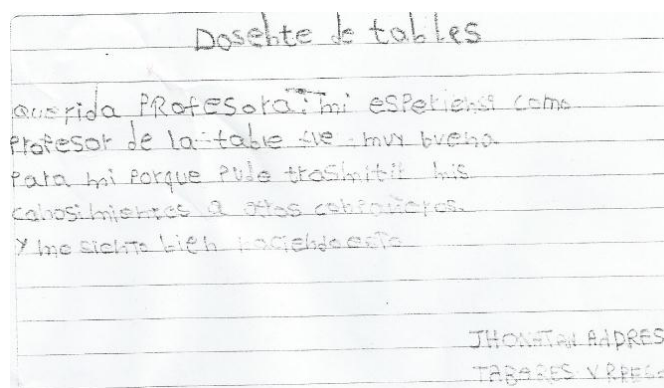 Dosehte de tables
querida PROfesora: mi esperiensi como
Profesor de la table fue muy bueno
Para mi Porque Pude trasmitit mis
conosimientos a otros compañeros.
Y me siento bien haciendo esto
JHONATAN ANDRES
TABARES